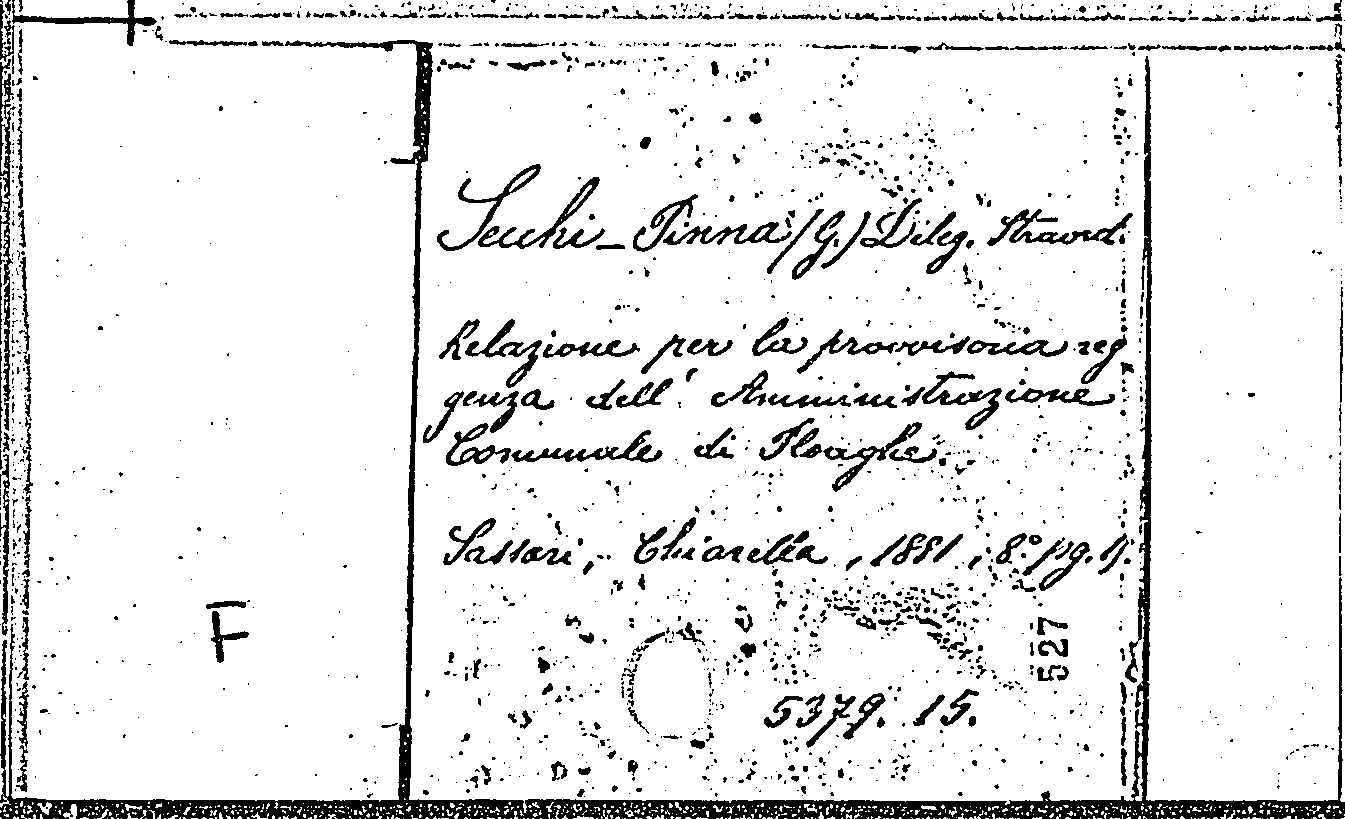 Secchi-Pinna (G.) Deleg. Straord.
Relazione per la provvisoria reg
genza dell' Amministrazione
Comunale di Ploaghe.
Sassari, Chiarella, 1881, 8.° pg.
F
527
5379. 15.